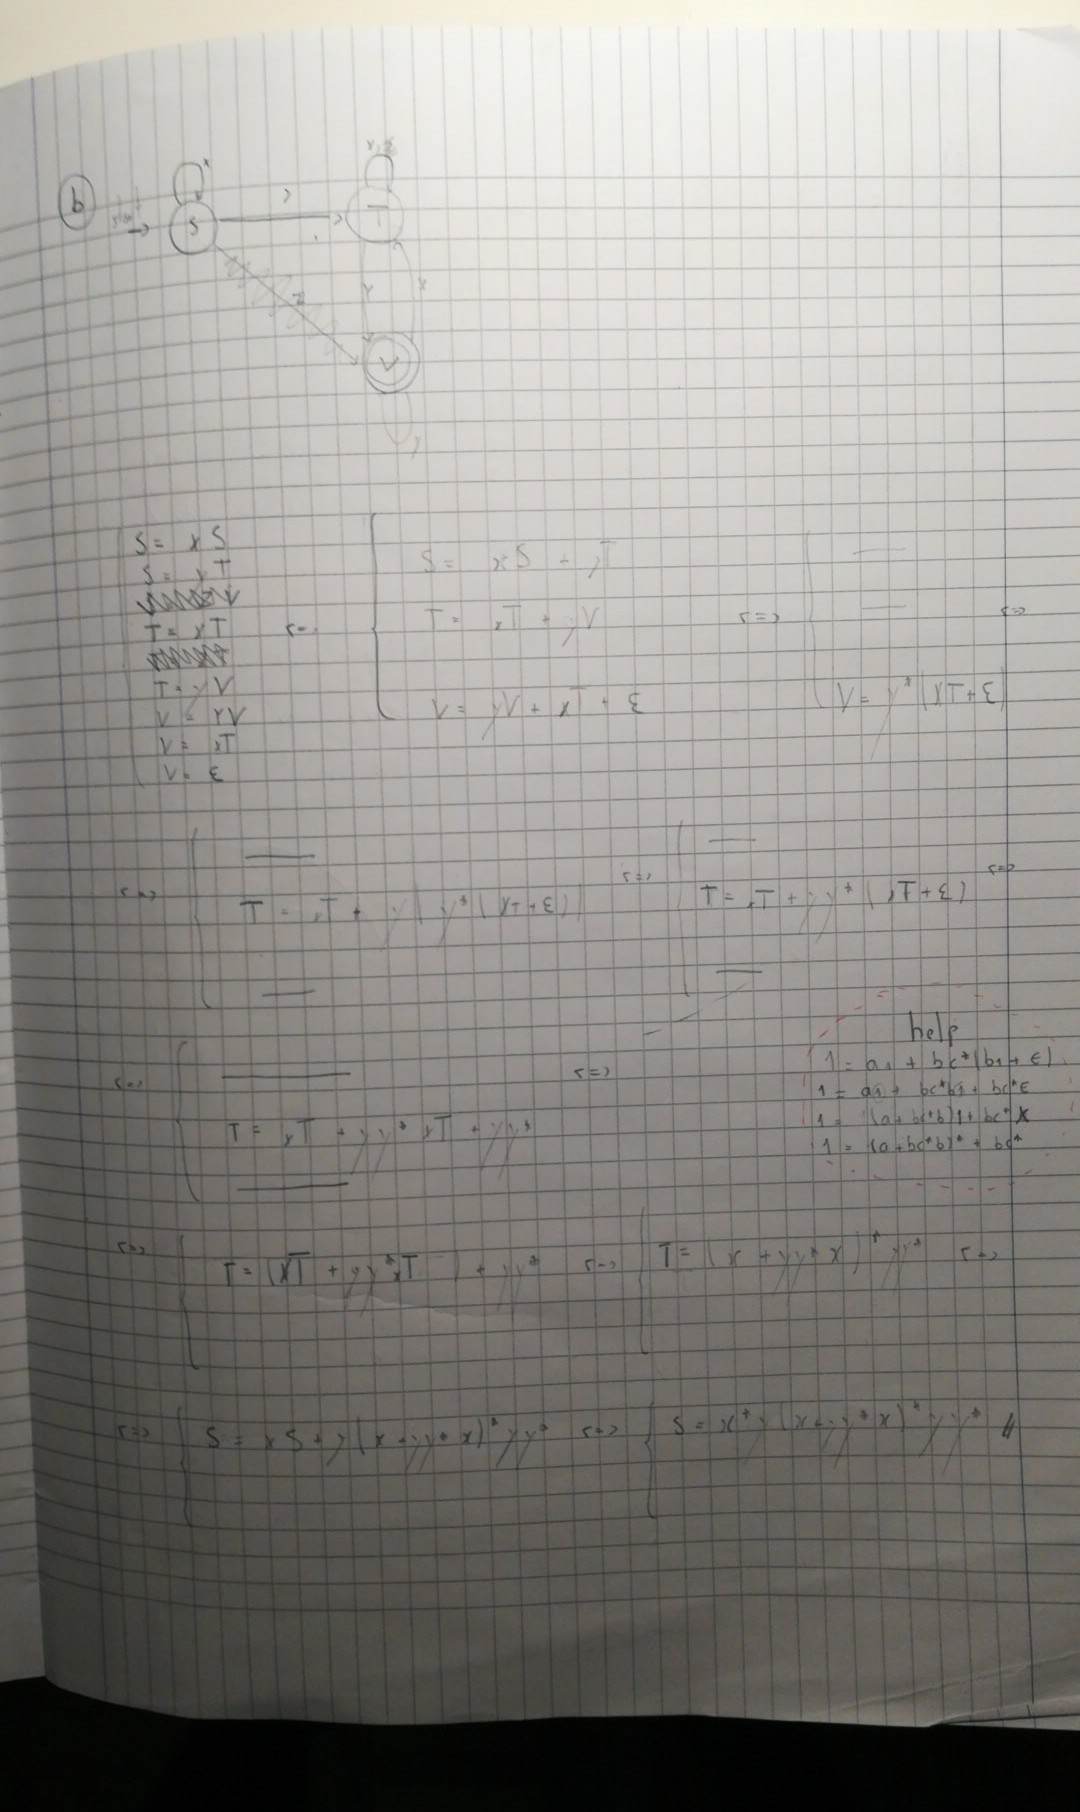 b
x
S
y
T
z
y
x
V
y
S = xS
S = yT
T = xT
T = yV
V = yV
V = xT
V = ε
S = xS + yT
T = xT + yV
V = yV + xT + ε
<=>
V = y*(xT+ε)
<=>
<=>
T = xT + y(y*(xT+ε))
<=>
T = xT + yy*(xT+ε)
<=>
help
1 = a1 + bc*(b1 + ε)
1 = a1 + bc*b1 + bc*ε
1 = (a+bc*b)1 + bc*
1 = (a+bc*b)* + bc*
<=>
T = xT + yy*xT + yy*
<=>
<=>
T = (xT + yy*xT ) + yy*
<=>
T = (x + yy*x)*yy*
<=>
<=>
S = xS + y(x+yy*x)*yy*
<=>
S = x*y(x+yy*x)*yy*